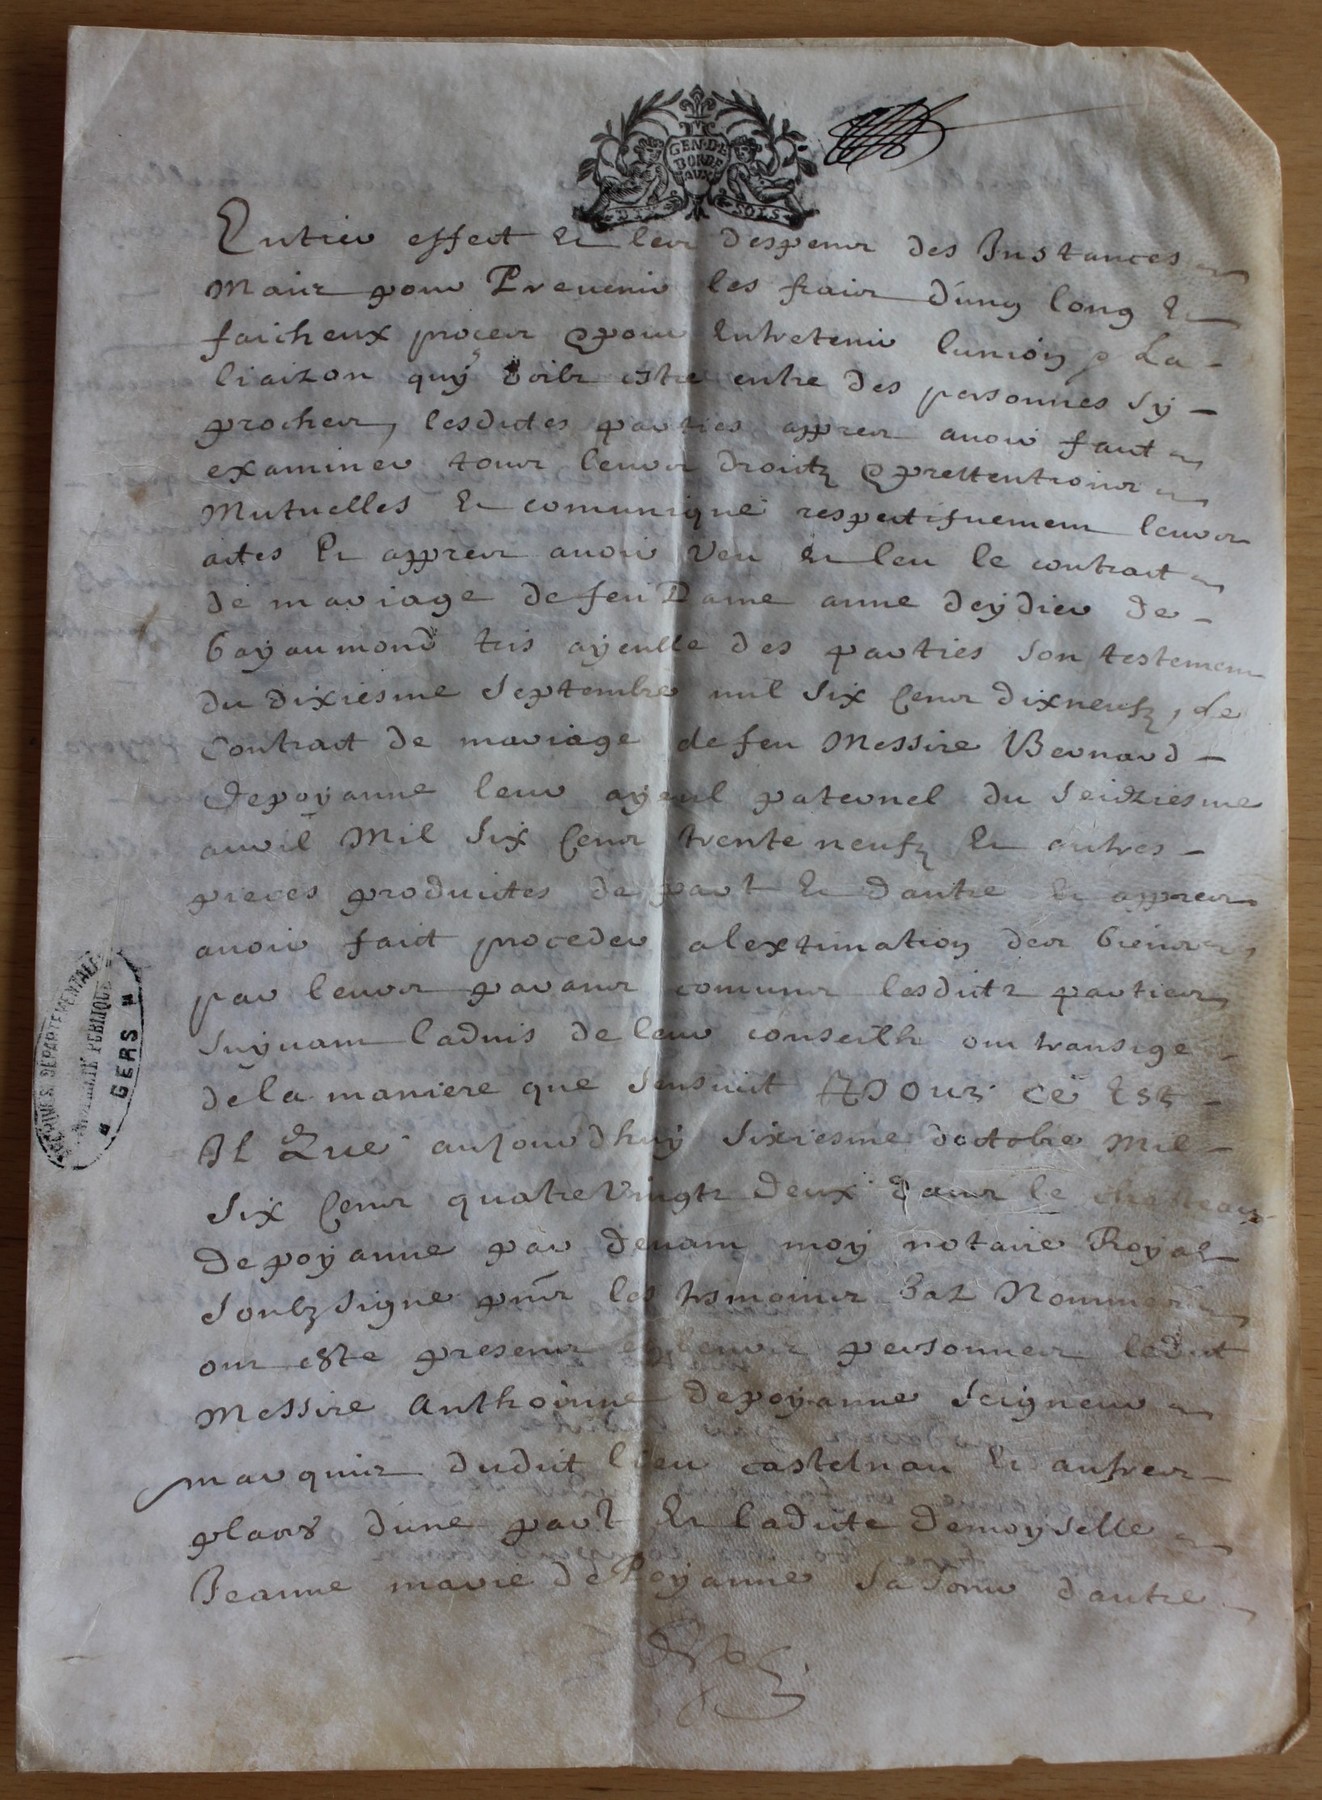 GEN · DE
BORDE
AUX
DIX SOLS
Entier effect Et leur despens des Instances
Mais pour Prevenir les frais d'ung long Et
faicheux proces & pour Entretenir lunion & La
liaizon quy doibt estre entre des personnes sy
proches, lesdites parties appres avoir faict
examiner tous leurs droitz & prettentions
Mutuelles Et comunique respectifvement leurs
actes Et appres avoir veu Et leu le contract
de mariage de feu Dame anne deydieu de
bayaumond ayeulle des parties son testement
du dixiesme septembre mil six cens dixneufz, Le
Contract de mariage de feu Messire Bernard
depoyanne leur ayeul paternel du seidziesme
avril Mil six cens trente neufz Et autres
pieces produittes de part Et dautre Et appres
avoir faict proceder alextimation des biens
par leurs parans comuns lesdits parties
suyvant ladvis de leur conseilh ont transige
de la maniere que sensuit ADonz ce Est
Il Que aujourdhuy sixiesme doctobre mil
six cens quatre vingtz deux dans le chasteau
depoyanne par devant moy notaire Royal
soubzsigne pnts les tesmoins bas Nommes
ont este presens en leurs personnes ledit
Messire anthoinne depoyanne seigneur
marquis dudit lieu castelnau Et autres
places dune part Et ladite demoyselle
Jeanne marie de Poyanne sa seur dautre
ARCHIVES DEPARTEMENTALES
PUBLIQUE
GERS